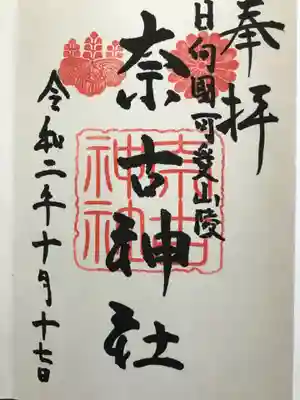 奉拝
日向國可愛山陵
奈古神社
奈古神社
令和二年十月十七日